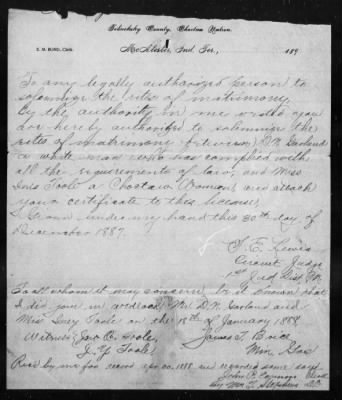 Tobucksy County, Choctaw Nation.
E. M. BOND, Clerk.
McAlester, Ind. Ter., 189
To any legally authorized person to
solemnize the rites of matrimony.
By the authority in me vested you
are hereby authorized to solemnize the
rites of matrimony between D. N. Garland
a white man who has complied with
all the requirements of law, and Miss
Inez Toole a Choctaw Woman and attach
your certificate to this license,
Given under my hand this 30th day of
December 1887.
S. E. Lewis
Circuit Judge
1st Jud Dist C.N.
To all whom it may concern be it known that
I did join in wedlock Mr. D. N. Garland and
Miss Inez Toole on the 18th of January 1888
Witness Geo O. Toole, James T. Brice
J. Y. Toole, Min. Gos
Recd by me for record 1888 and recorded same day
John P. Clerk
by Wm. T. Stephens D.C.